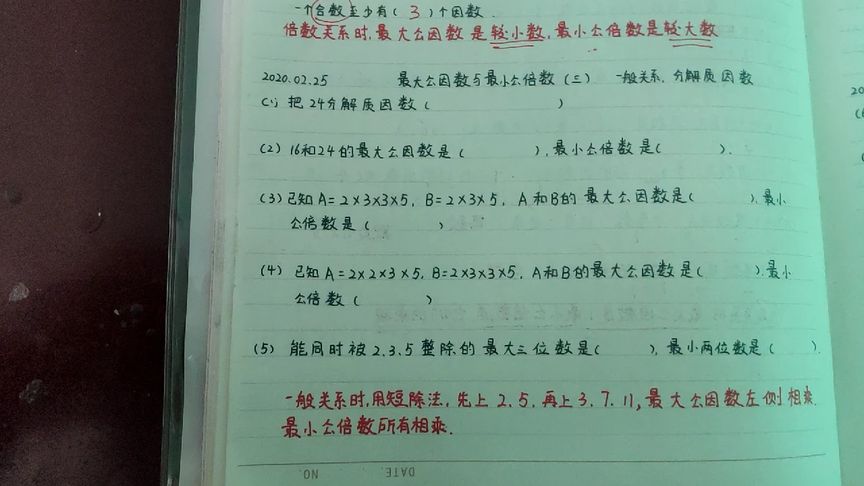 一个合数至少有( 3 )个因数.
倍数关系时,最大公因数是较小数,最小公倍数是较大数
2020.02.25 最大公因数与最小公倍数(三) 一般关系.分解质因数
(1) 把24分解质因数( )
(2) 16和24的最大公因数是( ),最小公倍数是( ).
(3) 已知A=2×3×3×5, B=2×3×5, A和B的最大公因数是( ).最小
公倍数是( )
(4) 已知A=2×2×3×5, B=2×3×3×5, A和B的最大公因数是( ).最小
公倍数( )
(5) 能同时被2.3.5整除的最大三位数是( ),最小两位数是( ).
一般关系时,用短除法,先上2.5,再上3.7.11,最大公因数左侧相乘.
最小公倍数所有相乘.
NO. DATE.
20